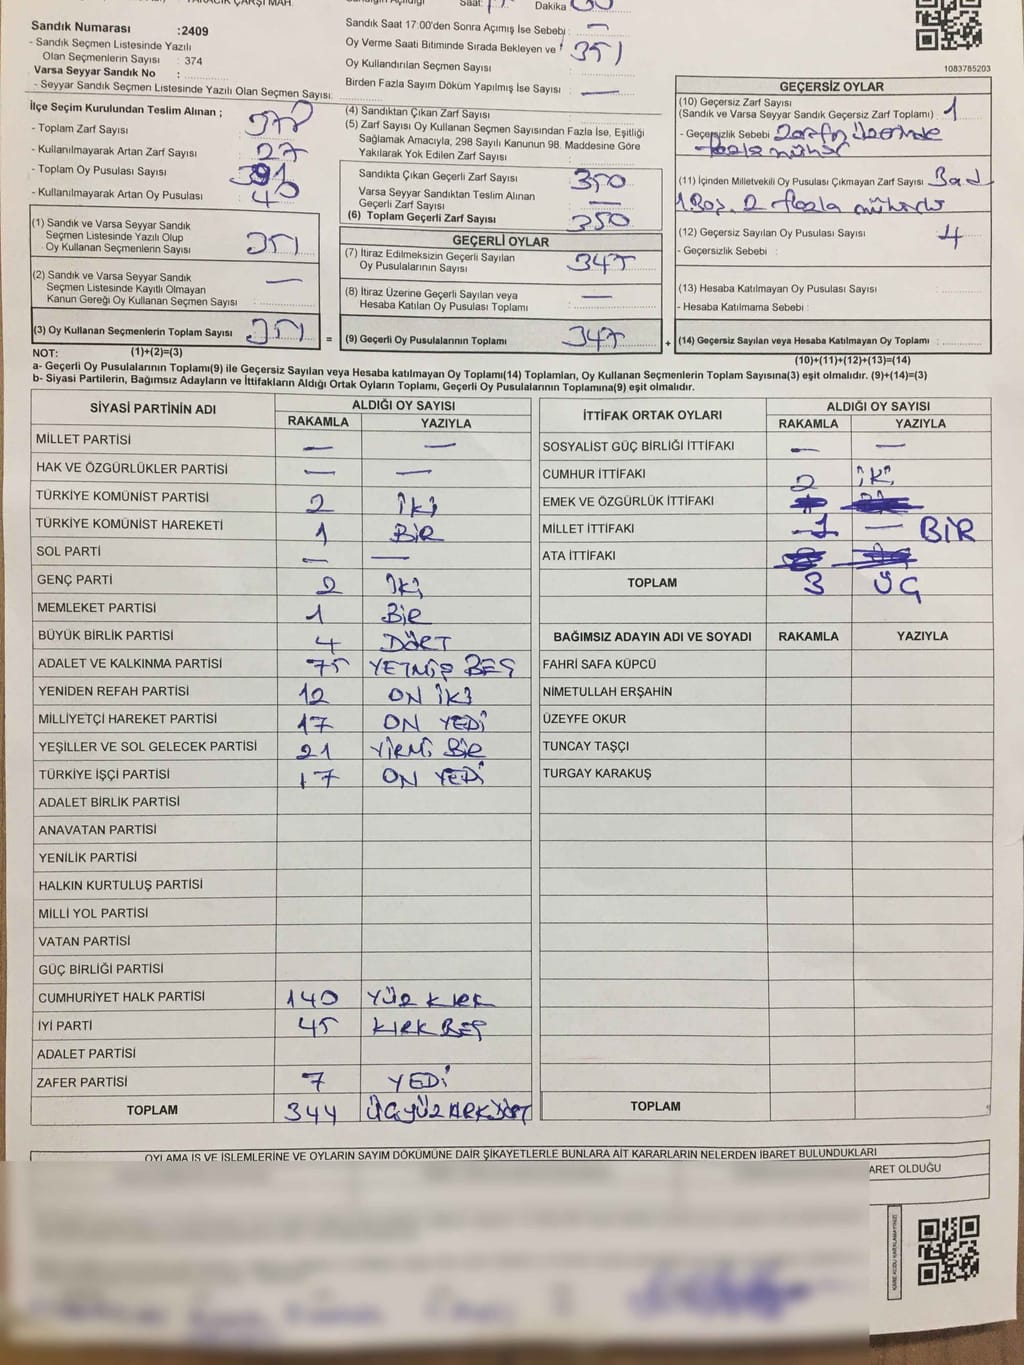 YARACIK ÇARŞI MAH.
Sandık Numarası :2409
- Sandık Seçmen Listesinde Yazılı
Olan Seçmenlerin Sayısı : 374
Varsa Seyyar Sandık No :
- Seyyar Sandık Seçmen Listesinde Yazılı Olan Seçmen Sayısı:
Saat Dakika
Sandık Saat 17:00'den Sonra Açımış İse Sebebi : —
Oy Verme Saati Bitiminde Sırada Bekleyen ve
Oy Kullandırılan Seçmen Sayısı : 351
Birden Fazla Sayım Döküm Yapılmış İse Sayısı : —
1083785203
İlçe Seçim Kurulundan Teslim Alınan ;
- Toplam Zarf Sayısı : 378
- Kullanılmayarak Artan Zarf Sayısı : 27
- Toplam Oy Pusulası Sayısı : 391
- Kullanılmayarak Artan Oy Pusulası : 40
(1) Sandık ve Varsa Seyyar Sandık
Seçmen Listesinde Yazılı Olup
Oy Kullanan Seçmenlerin Sayısı : 351
(2) Sandık ve Varsa Seyyar Sandık
Seçmen Listesinde Kayıtlı Olmayan
Kanun Gereği Oy Kullanan Seçmen Sayısı : —
(3) Oy Kullanan Seçmenlerin Toplam Sayısı : 351 =
(4) Sandıktan Çıkan Zarf Sayısı :
(5) Zarf Sayısı Oy Kullanan Seçmen Sayısından Fazla İse, Eşitliği
Sağlamak Amacıyla, 298 Sayılı Kanunun 98. Maddesine Göre
Yakılarak Yok Edilen Zarf Sayısı :
Sandıkta Çıkan Geçerli Zarf Sayısı : 350
Varsa Seyyar Sandıktan Teslim Alınan
Geçerli Zarf Sayısı : —
(6) Toplam Geçerli Zarf Sayısı : 350
GEÇERLİ OYLAR
(7) İtiraz Edilmeksizin Geçerli Sayılan
Oy Pusulalarının Sayısı : 347
(8) İtiraz Üzerine Geçerli Sayılan veya
Hesaba Katılan Oy Pusulası Toplamı : —
(9) Geçerli Oy Pusulalarının Toplamı : 347 +
GEÇERSİZ OYLAR
(10) Geçersiz Zarf Sayısı
(Sandık ve Varsa Seyyar Sandık Geçersiz Zarf Toplamı) : 1
- Geçersizlik Sebebi : Zarfın üzerinde
fazla mühür
(11) İçinden Milletvekili Oy Pusulası Çıkmayan Zarf Sayısı : 3ad
1 Boş. 2 fazla mühürlü
(12) Geçersiz Sayılan Oy Pusulası Sayısı : 4
- Geçersizlik Sebebi :
(13) Hesaba Katılmayan Oy Pusulası Sayısı :
- Hesaba Katılmama Sebebi :
(14) Geçersiz Sayılan veya Hesaba Katılmayan Oy Toplamı :
NOT: (1)+(2)=(3) (10)+(11)+(12)+(13)=(14)
a- Geçerli Oy Pusulalarının Toplamı(9) ile Geçersiz Sayılan veya Hesaba katılmayan Oy Toplamı(14) Toplamları, Oy Kullanan Seçmenlerin Toplam Sayısına(3) eşit olmalıdır. (9)+(14)=(3)
b- Siyasi Partilerin, Bağımsız Adayların ve İttifakların Aldığı Ortak Oyların Toplamı, Geçerli Oy Pusulalarının Toplamına(9) eşit olmalıdır.
SİYASİ PARTİNİN ADI ALDIĞI OY SAYISI
RAKAMLA YAZIYLA
MİLLET PARTİSİ — —
HAK VE ÖZGÜRLÜKLER PARTİSİ — —
TÜRKİYE KOMÜNİST PARTİSİ 2 İKİ
TÜRKİYE KOMÜNİST HAREKETİ 1 BİR
SOL PARTİ — —
GENÇ PARTİ 2 İKİ
MEMLEKET PARTİSİ 1 BİR
BÜYÜK BİRLİK PARTİSİ 4 DÖRT
ADALET VE KALKINMA PARTİSİ 75 YETMİŞ BEŞ
YENİDEN REFAH PARTİSİ 12 ON İKİ
MİLLİYETÇİ HAREKET PARTİSİ 17 ON YEDİ
YEŞİLLER VE SOL GELECEK PARTİSİ 21 YİRMİ BİR
TÜRKİYE İŞÇİ PARTİSİ 17 ON YEDİ
ADALET BİRLİK PARTİSİ
ANAVATAN PARTİSİ
YENİLİK PARTİSİ
HALKIN KURTULUŞ PARTİSİ
MİLLİ YOL PARTİSİ
VATAN PARTİSİ
GÜÇ BİRLİĞİ PARTİSİ
CUMHURİYET HALK PARTİSİ 140 YÜZ KIRK
İYİ PARTİ 45 KIRK BEŞ
ADALET PARTİSİ
ZAFER PARTİSİ 7 YEDİ
TOPLAM 344 ÜÇYÜZ KIRKDÖRT
İTTİFAK ORTAK OYLARI ALDIĞI OY SAYISI
RAKAMLA YAZIYLA
SOSYALİST GÜÇ BİRLİĞİ İTTİFAKI — —
CUMHUR İTTİFAKI 2 İKİ
EMEK VE ÖZGÜRLÜK İTTİFAKI
MİLLET İTTİFAKI 1 — BİR
ATA İTTİFAKI
TOPLAM 3 ÜÇ
BAĞIMSIZ ADAYIN ADI VE SOYADI RAKAMLA YAZIYLA
FAHRİ SAFA KÜPCÜ
NİMETULLAH ERŞAHİN
ÜZEYFE OKUR
TUNCAY TAŞÇI
TURGAY KARAKUŞ
TOPLAM
OYLAMA İŞ VE İŞLEMLERİNE VE OYLARIN SAYIM DÖKÜMÜNE DAİR ŞİKAYETLERLE BUNLARA AİT KARARLARIN NELERDEN İBARET BULUNDUKLARI
ARET OLDUĞU
KARE KODU KARALAMAYINIZ!